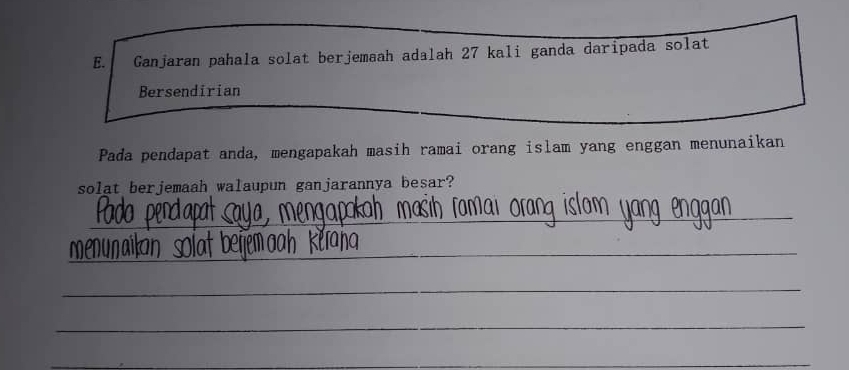 E. Ganjaran pahala solat berjemaah adalah 27 kali ganda daripada solat
Bersendirian
Pada pendapat anda, mengapakah masih ramai orang islam yang enggan menunaikan
solat berjemaah walaupun ganjarannya besar?
Pada pendapat saya, mengapakah masih ramai orang islam yang enggan
menunaikan solat berjemaah kerana